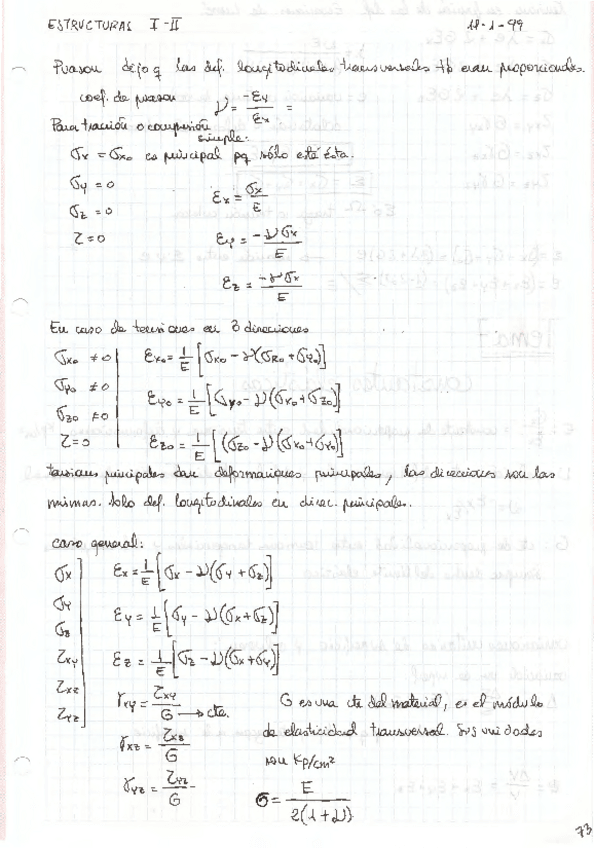 ESTRUCTURAS I-II 11-1-99
Poisson dejo q las def. longitudinales transversales tb eran proporcionales.
coef. de poisson ν = -εy/εx =
Para tracción o compresión simple:
σx = σx₀ es principal pq sólo esté ésta.
σy = 0 εx = σx/E
σz = 0
τ = 0 εy = -νσx/E
εz = -νσx/E
En caso de tensiones en 3 direcciones
σx₀ ≠ 0 εx₀ = 1/E [σx₀ - ν(σz₀ + σy₀)]
σy₀ ≠ 0 εy₀ = 1/E [σy₀ - ν(σx₀ + σz₀)]
σz₀ ≠ 0
τ = 0 εz₀ = 1/E [(σz₀ - ν(σx₀ + σy₀)]
tensiones principales dan deformaciones principales, las direcciones son las
mismas. solo def. longitudinales en direc. principales.
caso general:
σx εx = 1/E [σx - ν(σy + σz)]
σy εy = 1/E [σy - ν(σx + σz)]
σz
τxy εz = 1/E [σz - ν(σx + σy)]
τxz
τyz γxy = τxy/G → cte. G es una cte del material, es el módulo
γxz = τxz/G de elasticidad transversal. Sus unidades
son Kp/cm²
γyz = τyz/G G = E / 2(1+ν)
73